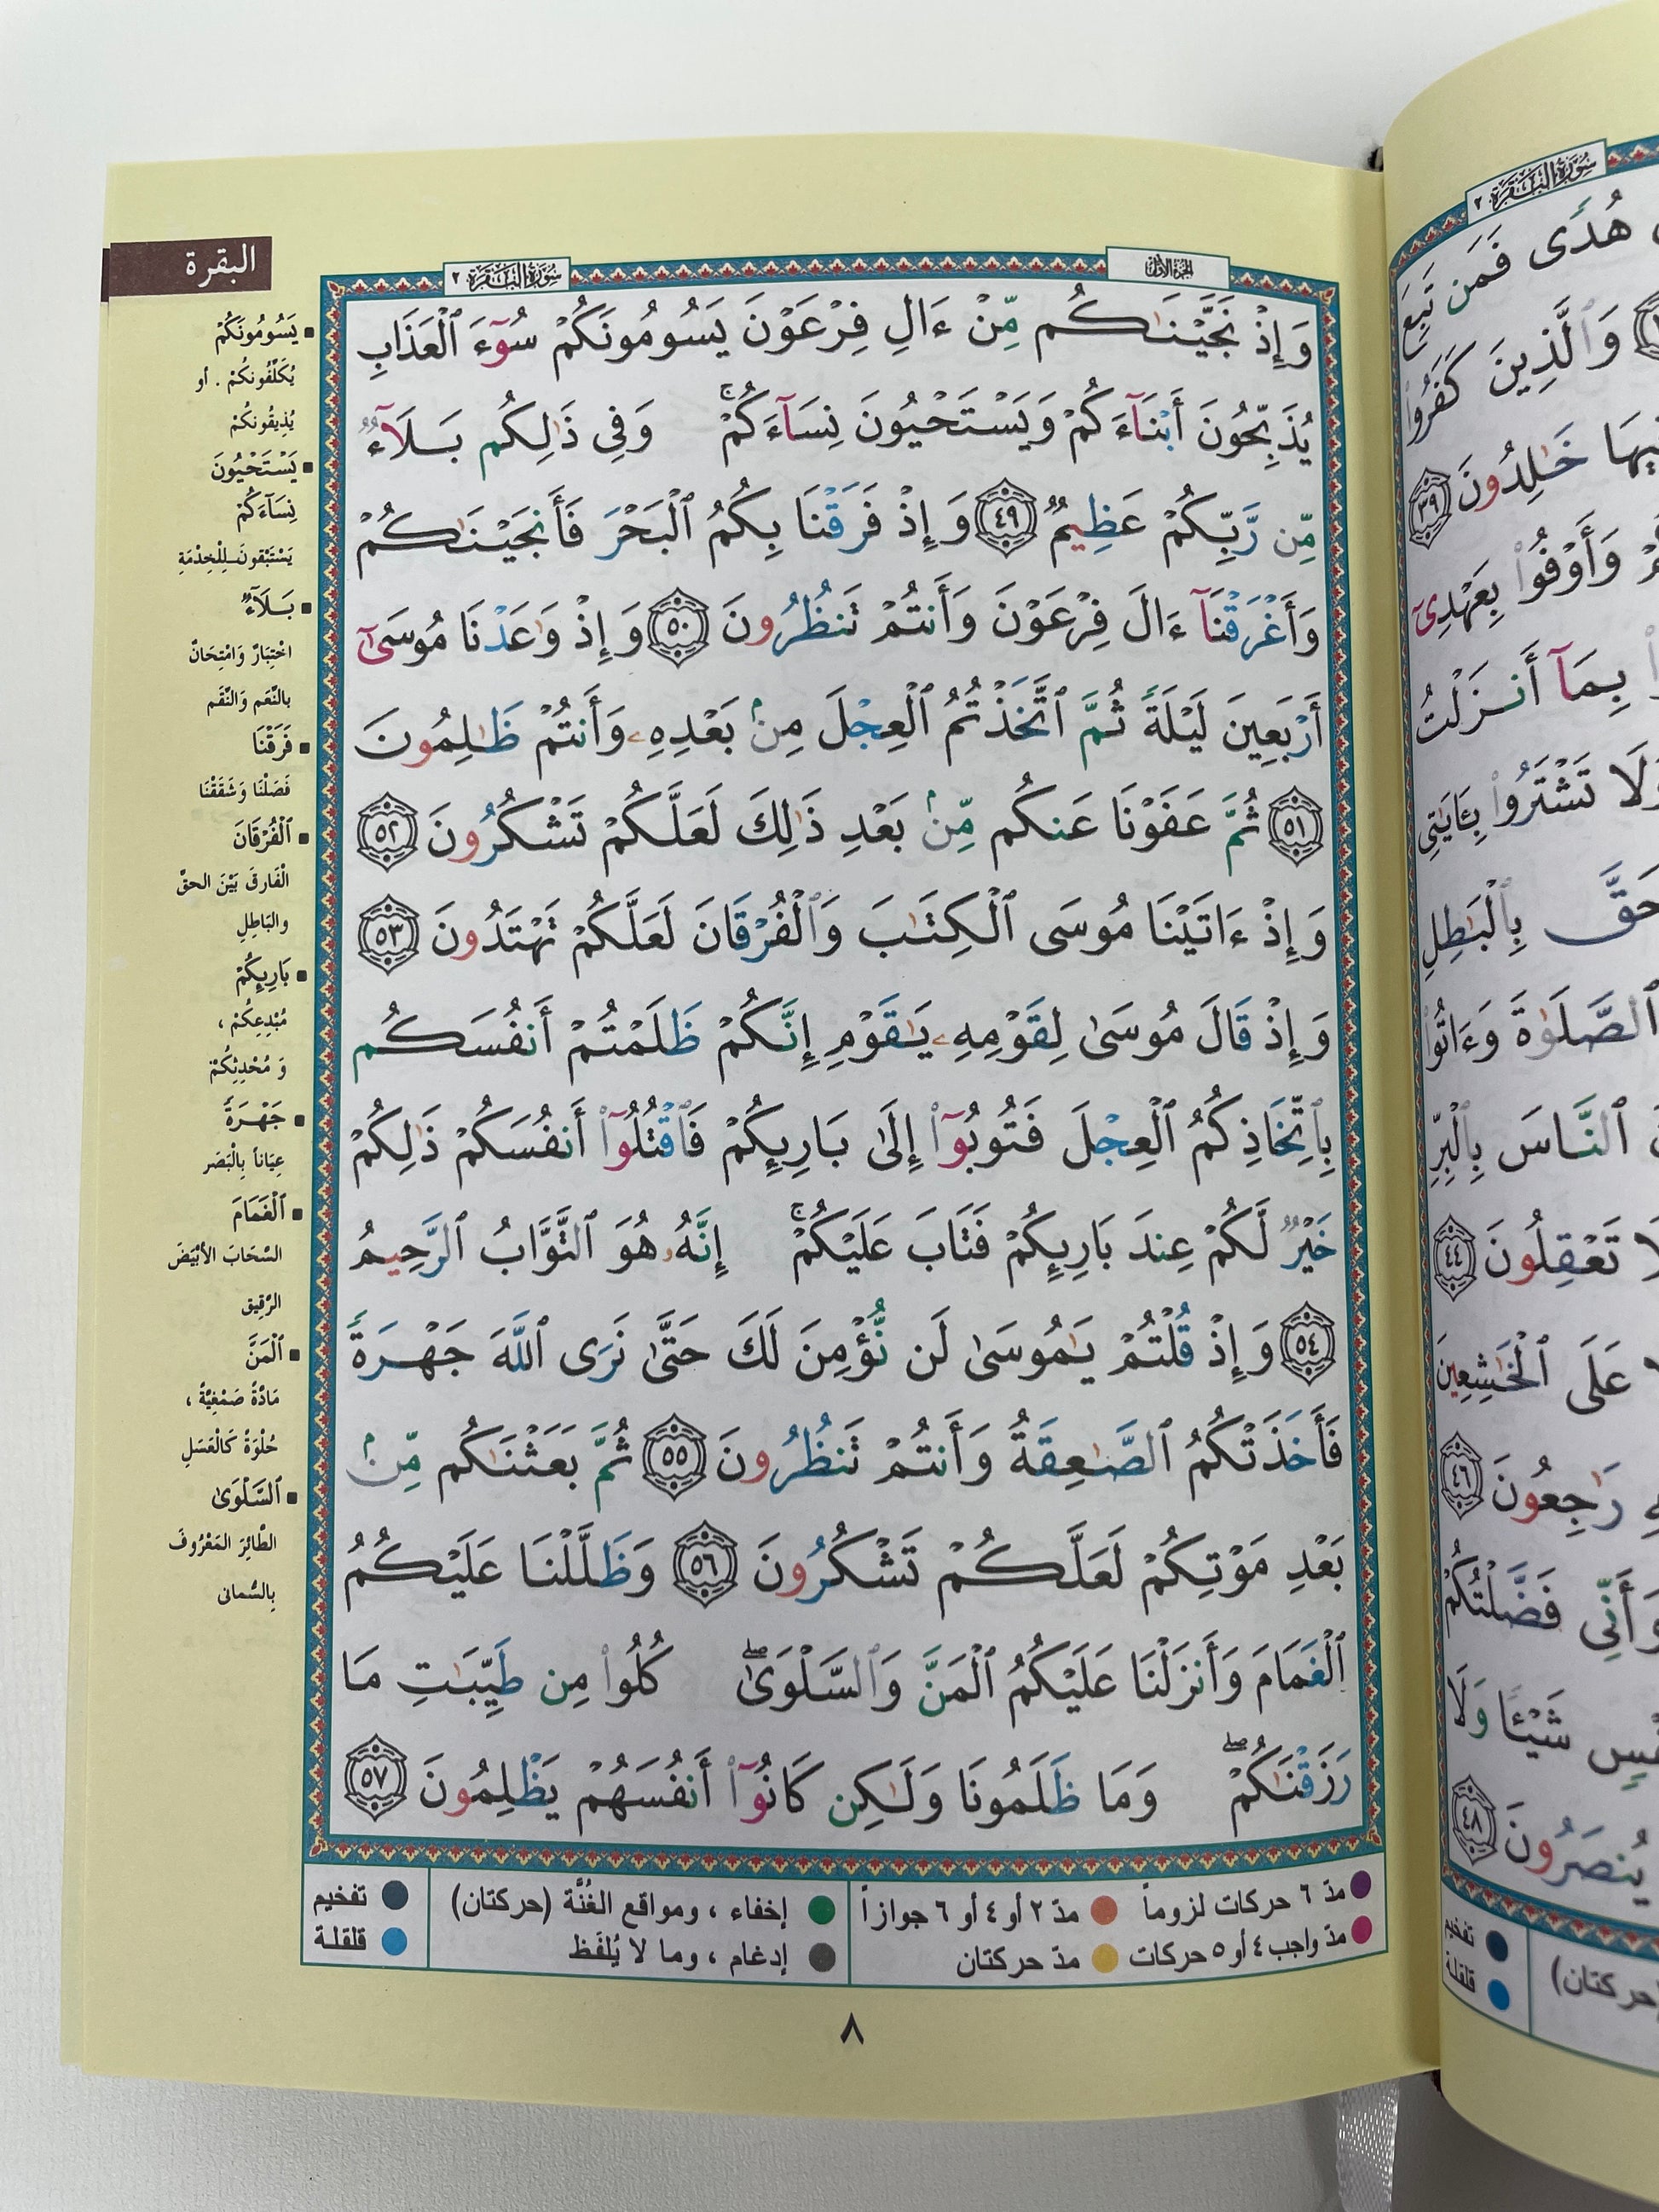 البقرة
الجزء الأول
سورة البقرة ٢
وَإِذْ نَجَّيْنَـٰكُم مِّنْ ءَالِ فِرْعَوْنَ يَسُومُونَكُمْ سُوٓءَ ٱلْعَذَابِ
يُذَبِّحُونَ أَبْنَآءَكُمْ وَيَسْتَحْيُونَ نِسَآءَكُمْ ۚ وَفِى ذَٰلِكُم بَلَآءٌ
مِّن رَّبِّكُمْ عَظِيمٌ ٤٩ وَإِذْ فَرَقْنَا بِكُمُ ٱلْبَحْرَ فَأَنجَيْنَـٰكُمْ
وَأَغْرَقْنَآ ءَالَ فِرْعَوْنَ وَأَنتُمْ تَنظُرُونَ ٥٠ وَإِذْ وَٰعَدْنَا مُوسَىٰٓ
أَرْبَعِينَ لَيْلَةً ثُمَّ ٱتَّخَذْتُمُ ٱلْعِجْلَ مِنۢ بَعْدِهِۦ وَأَنتُمْ ظَـٰلِمُونَ
٥١ ثُمَّ عَفَوْنَا عَنكُم مِّنۢ بَعْدِ ذَٰلِكَ لَعَلَّكُمْ تَشْكُرُونَ ٥٢
وَإِذْ ءَاتَيْنَا مُوسَى ٱلْكِتَـٰبَ وَٱلْفُرْقَانَ لَعَلَّكُمْ تَهْتَدُونَ ٥٣
وَإِذْ قَالَ مُوسَىٰ لِقَوْمِهِۦ يَـٰقَوْمِ إِنَّكُمْ ظَلَمْتُمْ أَنفُسَكُم
بِٱتِّخَاذِكُمُ ٱلْعِجْلَ فَتُوبُوٓا۟ إِلَىٰ بَارِئِكُمْ فَٱقْتُلُوٓا۟ أَنفُسَكُمْ ذَٰلِكُمْ
خَيْرٌ لَّكُمْ عِندَ بَارِئِكُمْ فَتَابَ عَلَيْكُمْ ۚ إِنَّهُۥ هُوَ ٱلتَّوَّابُ ٱلرَّحِيمُ
٥٤ وَإِذْ قُلْتُمْ يَـٰمُوسَىٰ لَن نُّؤْمِنَ لَكَ حَتَّىٰ نَرَى ٱللَّهَ جَهْرَةً
فَأَخَذَتْكُمُ ٱلصَّـٰعِقَةُ وَأَنتُمْ تَنظُرُونَ ٥٥ ثُمَّ بَعَثْنَـٰكُم مِّنۢ
بَعْدِ مَوْتِكُمْ لَعَلَّكُمْ تَشْكُرُونَ ٥٦ وَظَلَّلْنَا عَلَيْكُمُ
ٱلْغَمَامَ وَأَنزَلْنَا عَلَيْكُمُ ٱلْمَنَّ وَٱلسَّلْوَىٰ ۖ كُلُوا۟ مِن طَيِّبَـٰتِ مَا
رَزَقْنَـٰكُمْ ۖ وَمَا ظَلَمُونَا وَلَـٰكِن كَانُوٓا۟ أَنفُسَهُمْ يَظْلِمُونَ ٥٧
يَسُومُونَكُمْ
يُكَلِّفُونَكُمْ . أو
يُذِيقُونَكُمْ
يَسْتَحْيُونَ
نِسَآءَكُمْ
يَسْتَبْقُونَـــ لِلْخِدْمَةِ
بَلَآءٌ
اخْتِبَارٌ وَامْتِحَانٌ
بالنَّعَم وَالنِّقَم
فَرَقْنَا
فَصَلْنَا وَشَقَقْنَا
ٱلْفُرْقَانَ
الْفَارِقَ بَيْنَ الحقّ
والبَاطِلِ
بَارِئِكُمْ
مُبْدِعِكُمْ ،
وَ مُحْدِثِكُمْ
جَهْرَةً
عِيَاناً بِالْبَصَرِ
ٱلْغَمَامَ
السَّحَابَ الأَبْيَضَ
الرَّقِيق
ٱلْمَنَّ
مَادَّةً صَمْغِيَّةً ،
حُلْوَةً كَالْعَسَلِ
ٱلسَّلْوَىٰ
الطَّائِرَ المَعْرُوفَ
بِالسُّمانى
مدّ ٦ حركات لزوماً
مدّ واجب ٤ أو ٥ حركات
مدّ ٢ أو ٤ أو ٦ جوازاً
مدّ حركتان
إخفاء ، ومواقع الغُنَّة (حركتان)
إدغام ، وما لا يُلفَظ
تفخيم
قلقلة
٨
سورة البقرة ٢
هُدًى فَمَن تَبِعَ
وَٱلَّذِينَ كَفَرُوا۟
فِيهَا خَـٰلِدُونَ ٣٩
وَأَوْفُوا۟ بِعَهْدِىٓ
بِمَآ أَنزَلْتُ
وَلَا تَشْتَرُوا۟ بِـَٔايَـٰتِى
حَقَّ بِٱلْبَـٰطِلِ
ٱلصَّلَوٰةَ وَءَاتُوا۟
ٱلنَّاسَ بِٱلْبِرِّ
تَعْقِلُونَ ٤٤
عَلَى ٱلْخَـٰشِعِينَ
رَٰجِعُونَ ٤٦
وَأَنِّى فَضَّلْتُكُمْ
شَيْـًٔا وَلَا
يُنصَرُونَ ٤٨
تفخيم
قلقلة
حركتان)